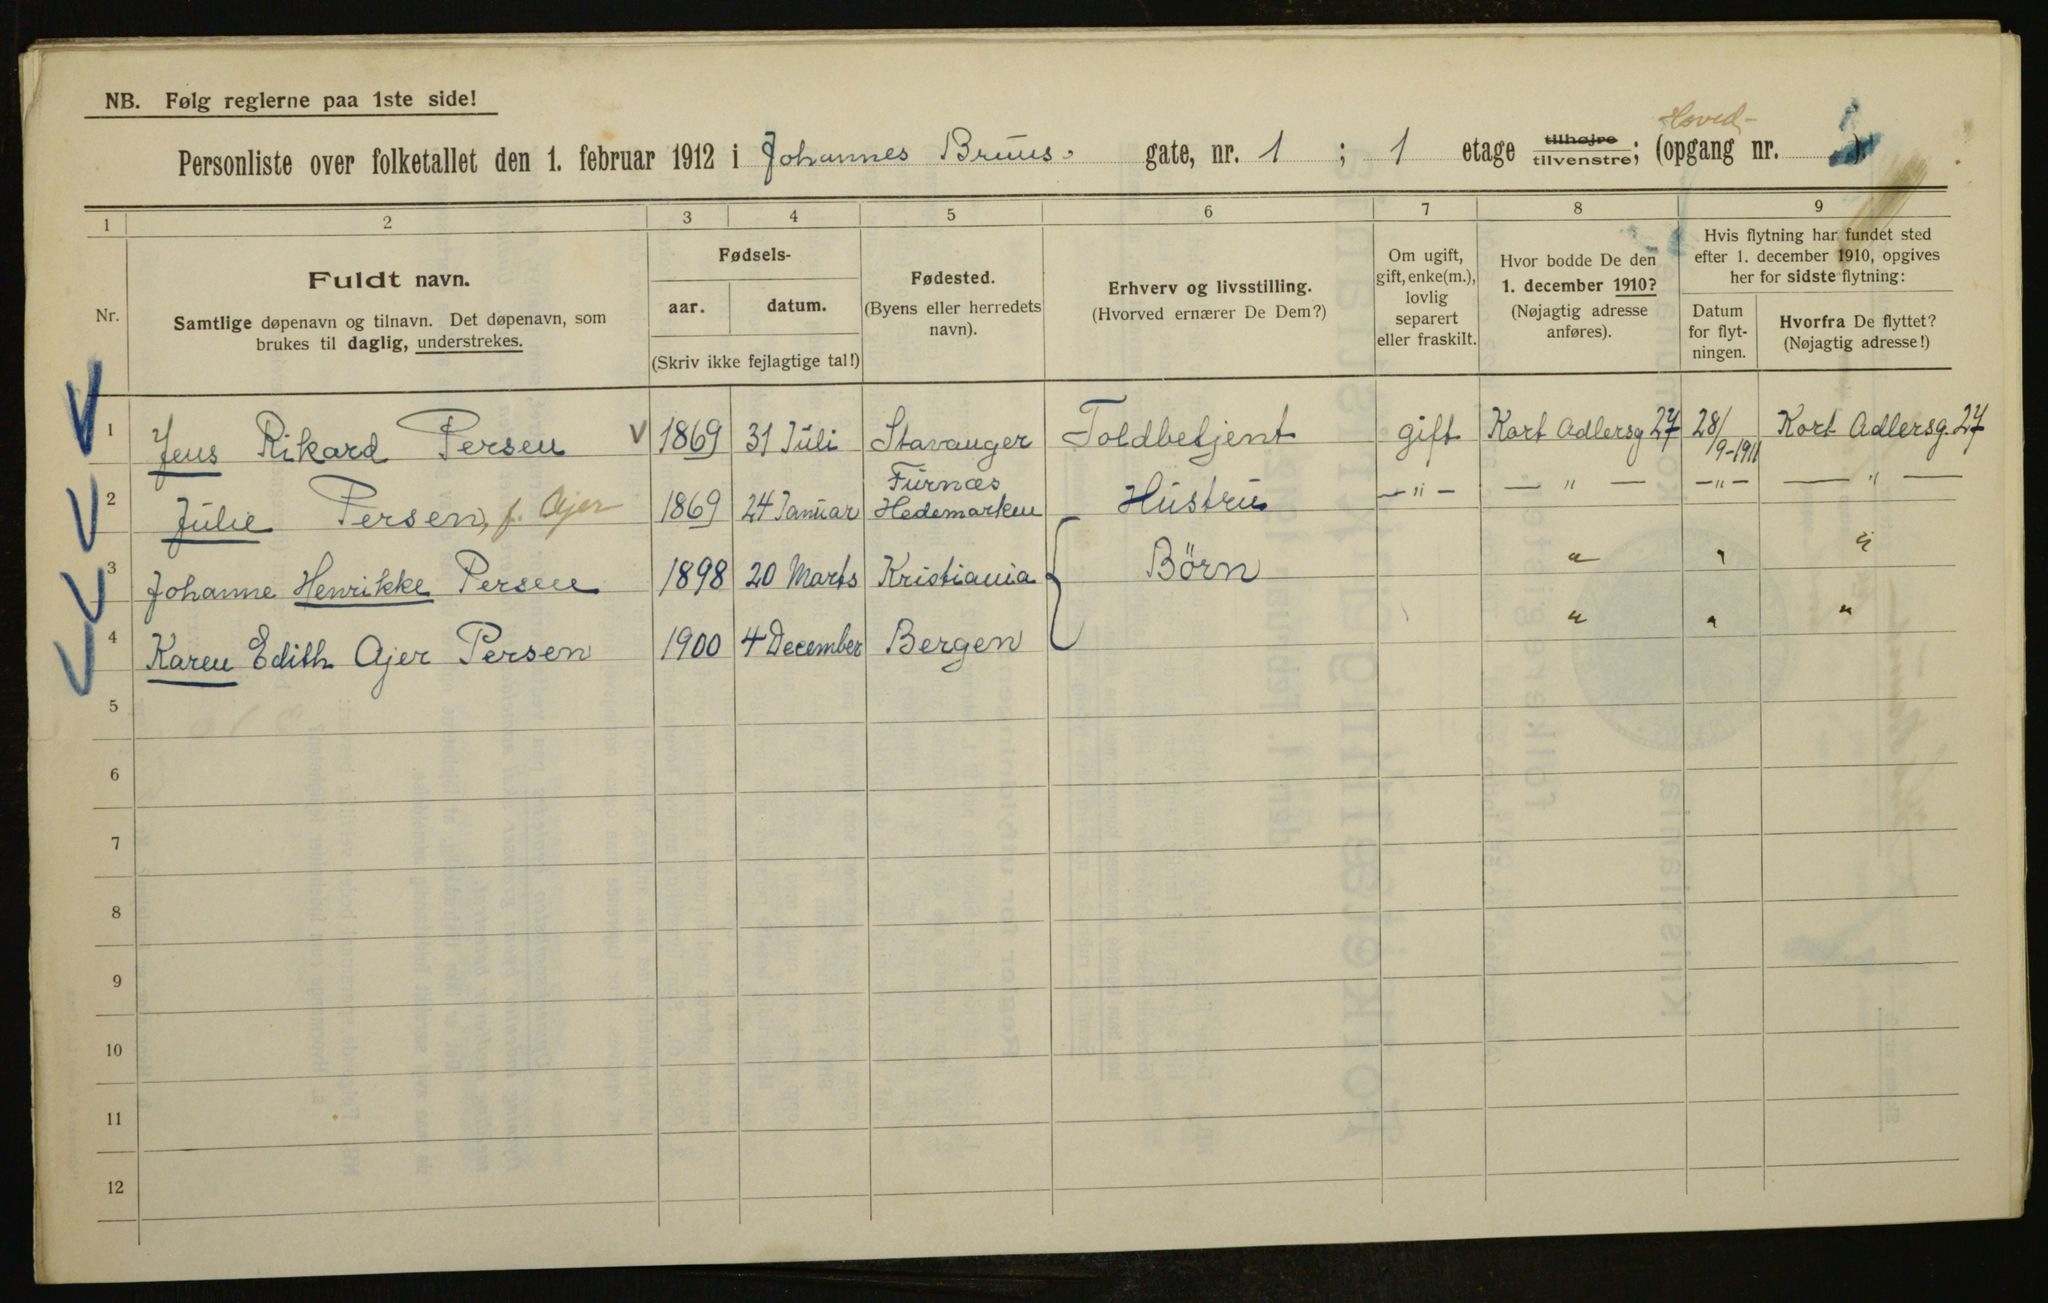 NB. Følg reglerne paa 1ste side!
Hoved-
Personliste over folketallet den 1. februar 1912 i Johannes Bruus. gate, nr. 1 ; 1 etage tilhøjre tilvenstre; (opgang nr. ).
1 2 3 4 5 6 7 8 9
Nr.
Fuldt navn.
Samtlige døpenavn og tilnavn. Det døpenavn, som
brukes til daglig, understrekes.
Fødsels-
aar. datum.
(Skriv ikke fejlagtige tal!)
Fødested.
(Byens eller herredets
navn).
Erhverv og livsstilling.
(Hvorved ernærer De Dem?)
Om ugift,
gift, enke(m.),
lovlig
separert
eller fraskilt.
Hvor bodde De den
1. december 1910?
(Nøjagtig adresse
anføres).
Hvis flytning har fundet sted
efter 1. december 1910, opgives
her for sidste flytning:
Datum
for flyt-
ningen.
Hvorfra De flyttet?
(Nøjagtig adresse!)
1 Jens Rikard Persen V 1869 31 Juli Stavanger Toldbetjent gift Kort Adlersg 27 28/9-1911 Kort Adlersg. 27
2 Julie Persen, f. Ajer 1869 24 Januar Furnæs Hedemarken Hustru —"— — " — —"— — " —
3 Johanne Henrikke Persen 1898 20 Marts Kristiania Børn " " "
4 Karen Edith Ajer Persen 1900 4 December Bergen " " "
5
6
7
8
9
10
11
12